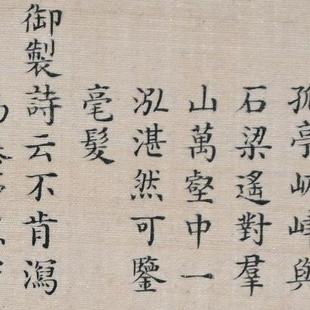 孤亭與
石梁遙對羣
山萬壑中一
泓湛然可鑒
毫髮
御製詩云不肯瀉